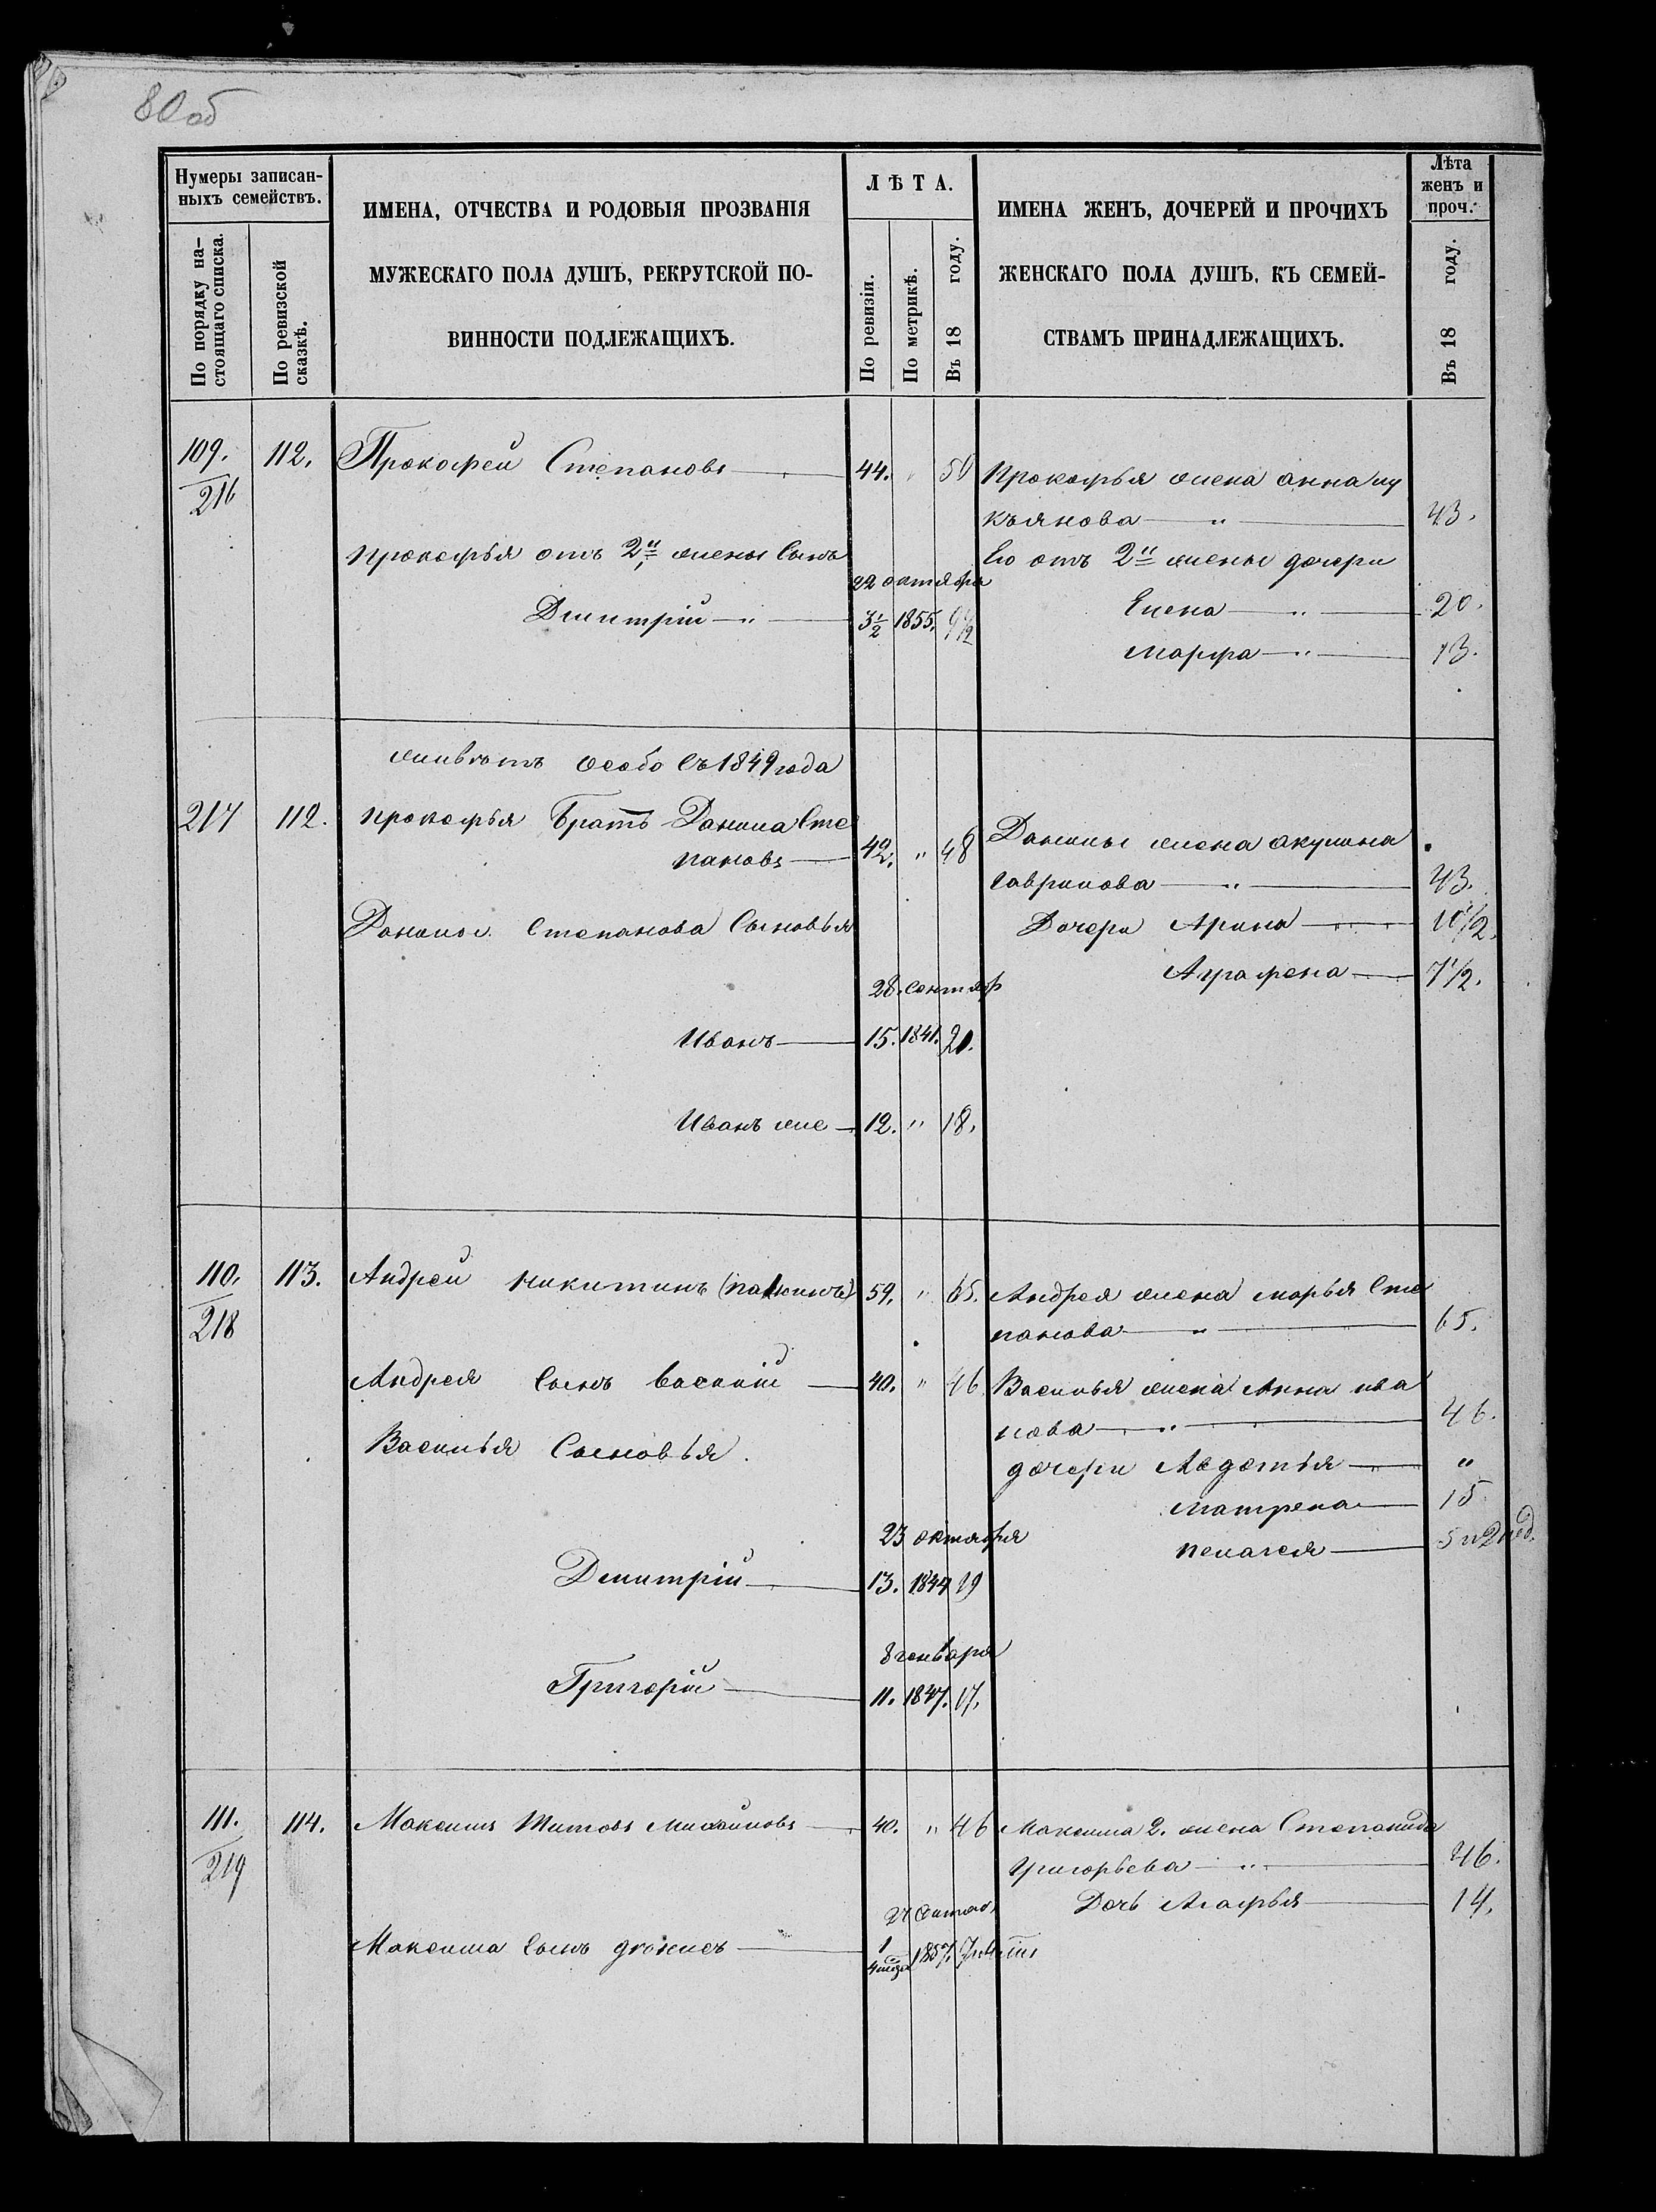 80об
Нумеры записан-
ныхъ семействъ.
По порядку на-
стоящаго списка.
По ревизской
сказкѣ.
ИМЕНА, ОТЧЕСТВА И РОДОВЫЯ ПРОЗВАНІЯ
МУЖЕСКАГО ПОЛА ДУШЪ, РЕКРУТСКОЙ ПО-
ВИННОСТИ ПОДЛЕЖАЩИХЪ.
ЛѢТА.
По ревизіи.
По метрикѣ.
Въ 18 году.
ИМЕНА ЖЕНЪ, ДОЧЕРЕЙ И ПРОЧИХЪ
ЖЕНСКАГО ПОЛА ДУШЪ, КЪ СЕМЕЙ-
СТВАМЪ ПРИНАДЛЕЖАЩИХЪ.
Лѣта
женъ и
проч.
Въ 18 году.
109. 112. Прокофей Степановъ 44. " 50
216
Прокофья жена анна лу
кьянова " 43.
Прокофья отъ 2й жены сынъ
22 октября
Дмитрій " 3½ 1855. 9½
Ею отъ 2й жены дочери
Елена " 20.
марфа " 13.
живутъ особо съ 1849 года
217 112. прокофья братъ Данила Сте
пановъ 42. " 48
Данилы жена акулина
гаврилова " 43.
Данилы Степанова сыновья
Дочери Арина 10½.
Аграфена 7½.
28. сентяб
Иванъ 15. 1841. 21.
Иванъ же 12. " 18.
110. 113. Андрей никитинъ 59. " 65.
218
Андрея жена марья Сте
панова " 65.
Андрея сынъ василій 40. " 46
Василья жена Анна ива
нова " 46.
Василья сыновья.
дочери Авдотья "
матрена 15
пелагея 5 и 2 нед.
23 октября
Дмитрій 13. 1844 19
8 генваря
Григорій 11. 1847. 17.
111. 114. Максимъ Титовъ Михайловъ 40. " 46
219
Максима 2. жена Степанида
Григорьева " 46.
Дочь Агафья 14.
Максима сынъ 1 1857.